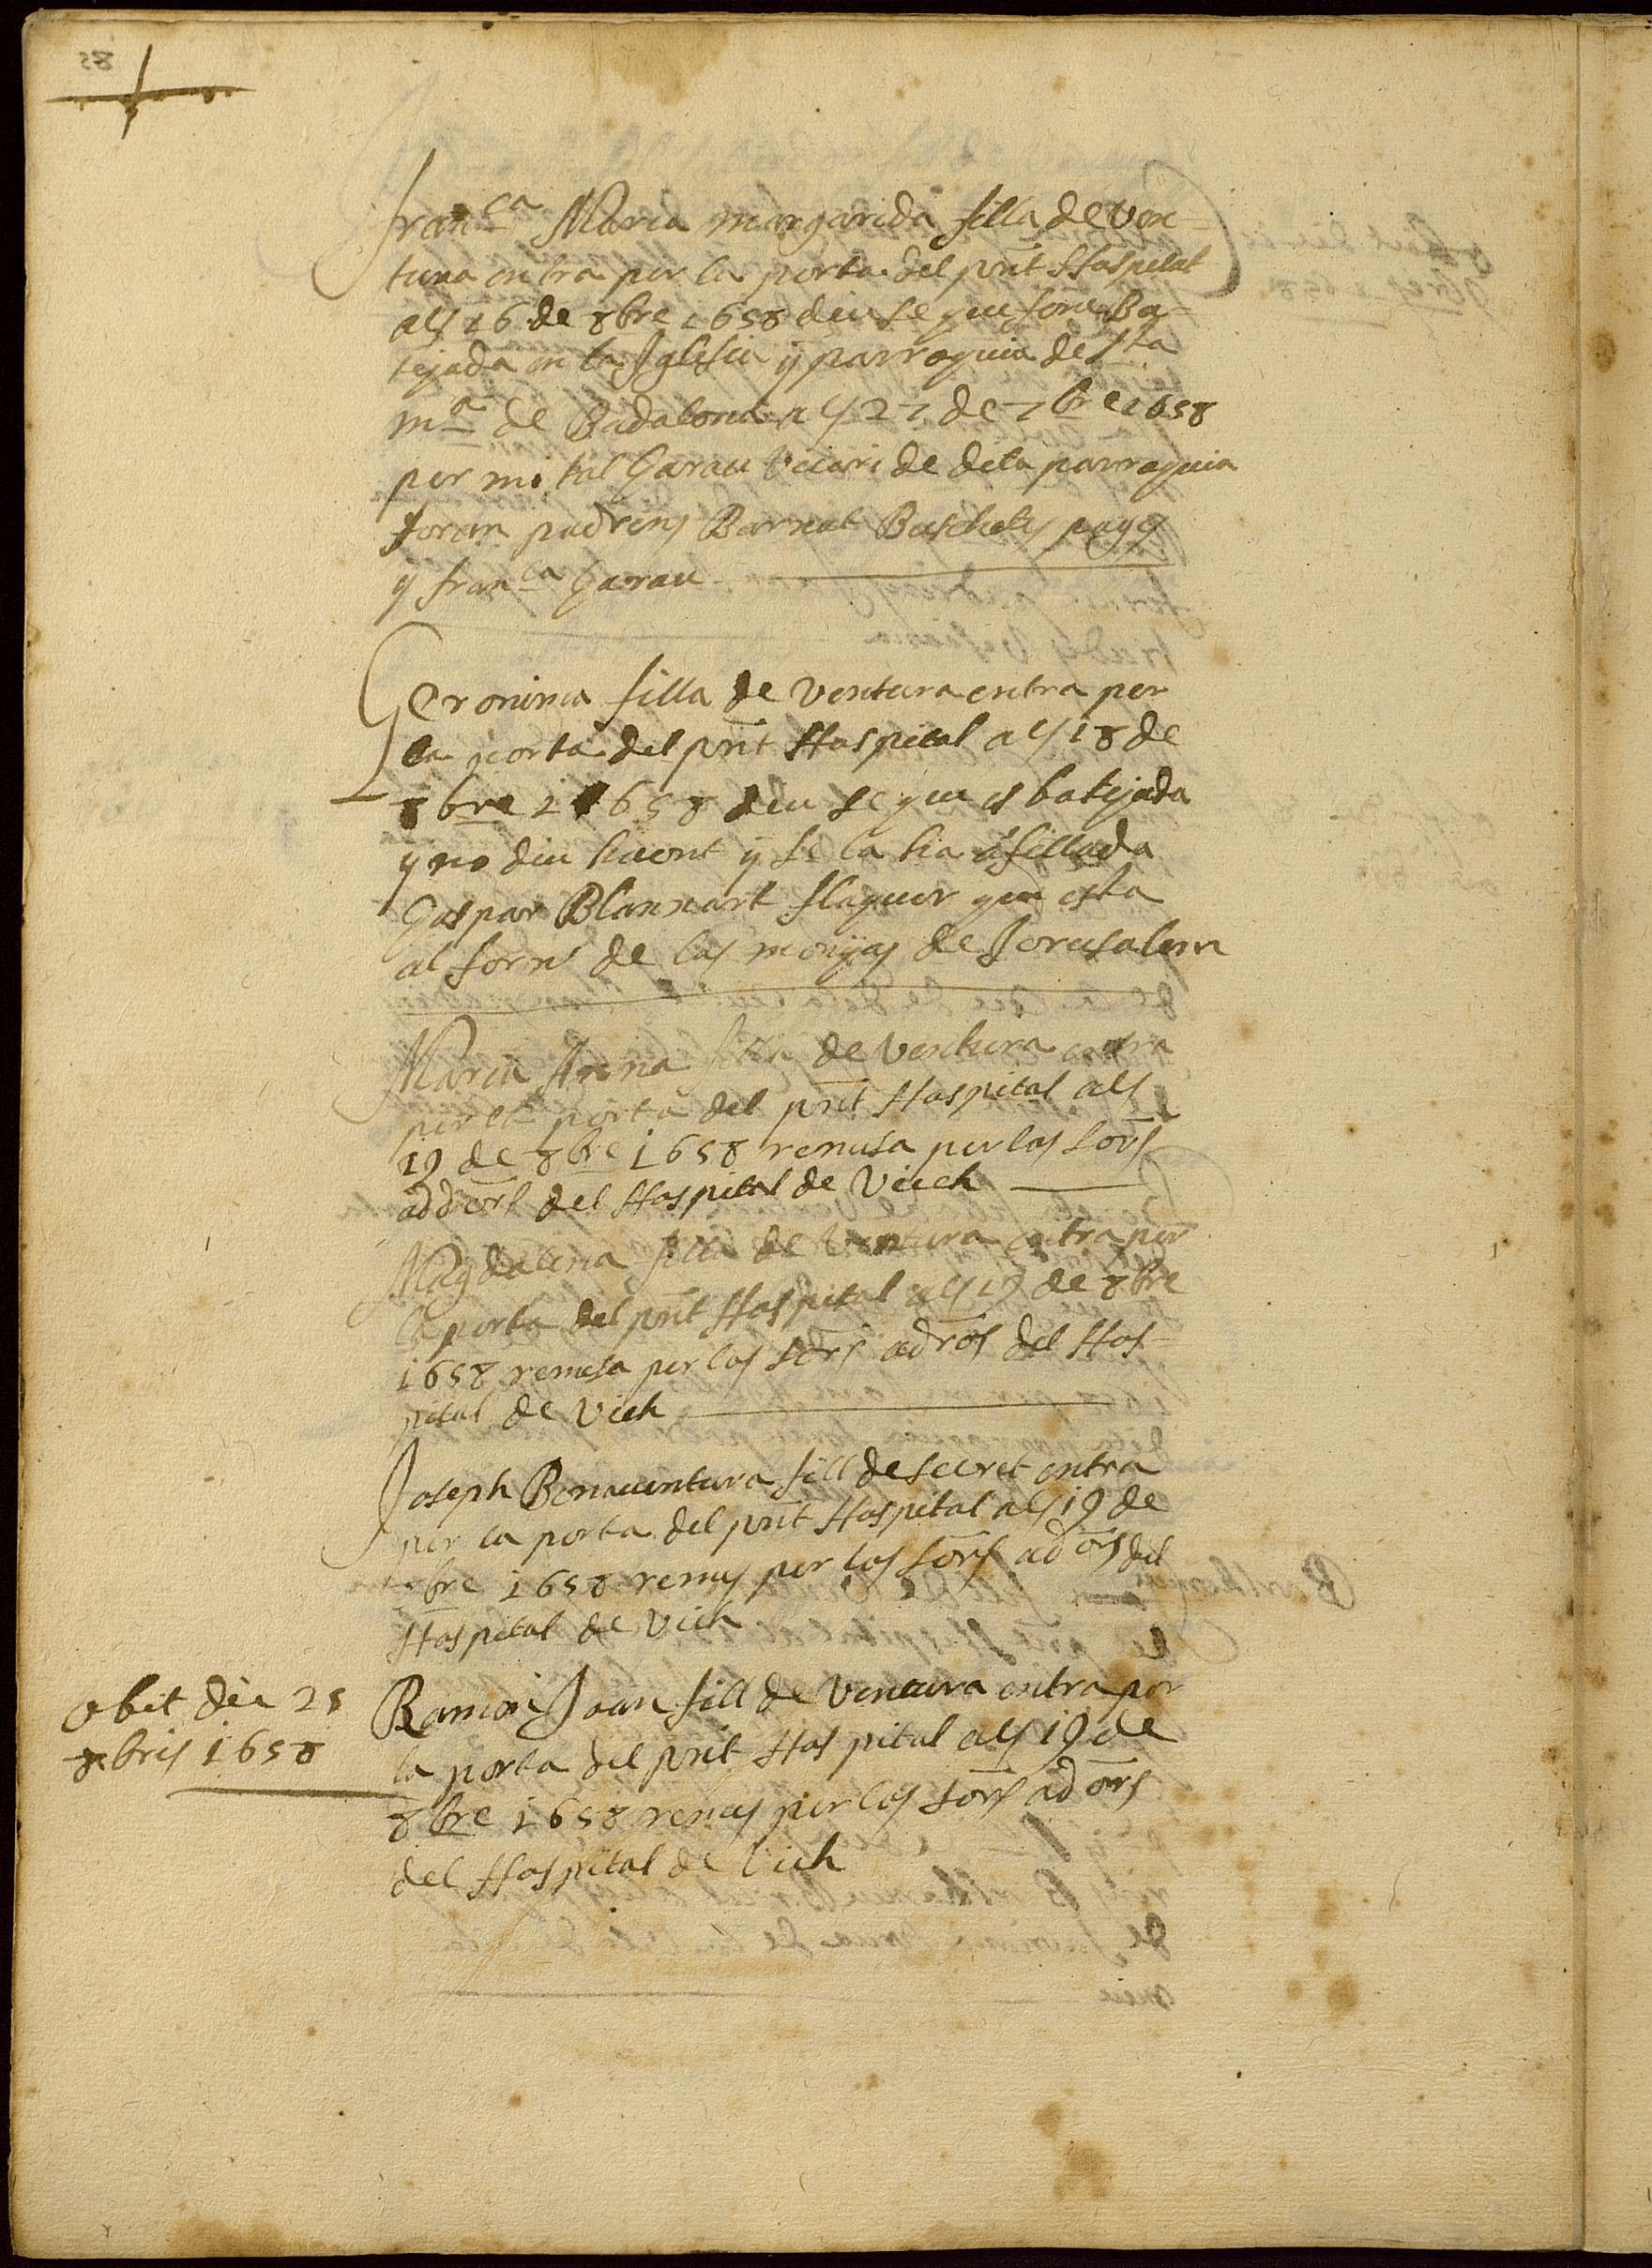 Fran.ca Maria margarida filla de Ven=
tura entra per la porta del pnt Hospital
als 16 de 8bre 1658 diu se que fonc Ba=
tejada en la Iglesia y parroquia de Sta
Ma de Badalona als 27 de 7bre 1658
per mi tal Garau Vicari de dita parroquia
foren padrins Barnat Buschets pages
y Fran.ca Garau
Geronima filla de Ventura entra per
la porta del pnt Hospital als 18 de
8bre 1658 diu se que es batejada
y no diu haont y se la ha afillada
Gaspar Blannart flaquer que esta
al forn de las monjas de Jerusalem
Maria Anna filla de Ventura entra
per la porta del pnt Hospital als
19 de 8bre 1658 remesa per los Sors
addors del Hospital de Vich
Magdalena filla de Ventura entra per
la porta del pnt Hospital als 19 de 8bre
1658 remesa per los Sors adros del Hos=
pital de Vich
Joseph Bonaventura fill de secret entra
per la porta del pnt Hospital als 19 de
8bre 1658 remes per los Sors adors del
Hospital de Vich
obit die 25
8bris 1658
Ramon Joan fill de Ventura entra per
la porta del pnt Hospital als 19 de
8bre 1658 remes per los Sors adors
del Hospital de Vich